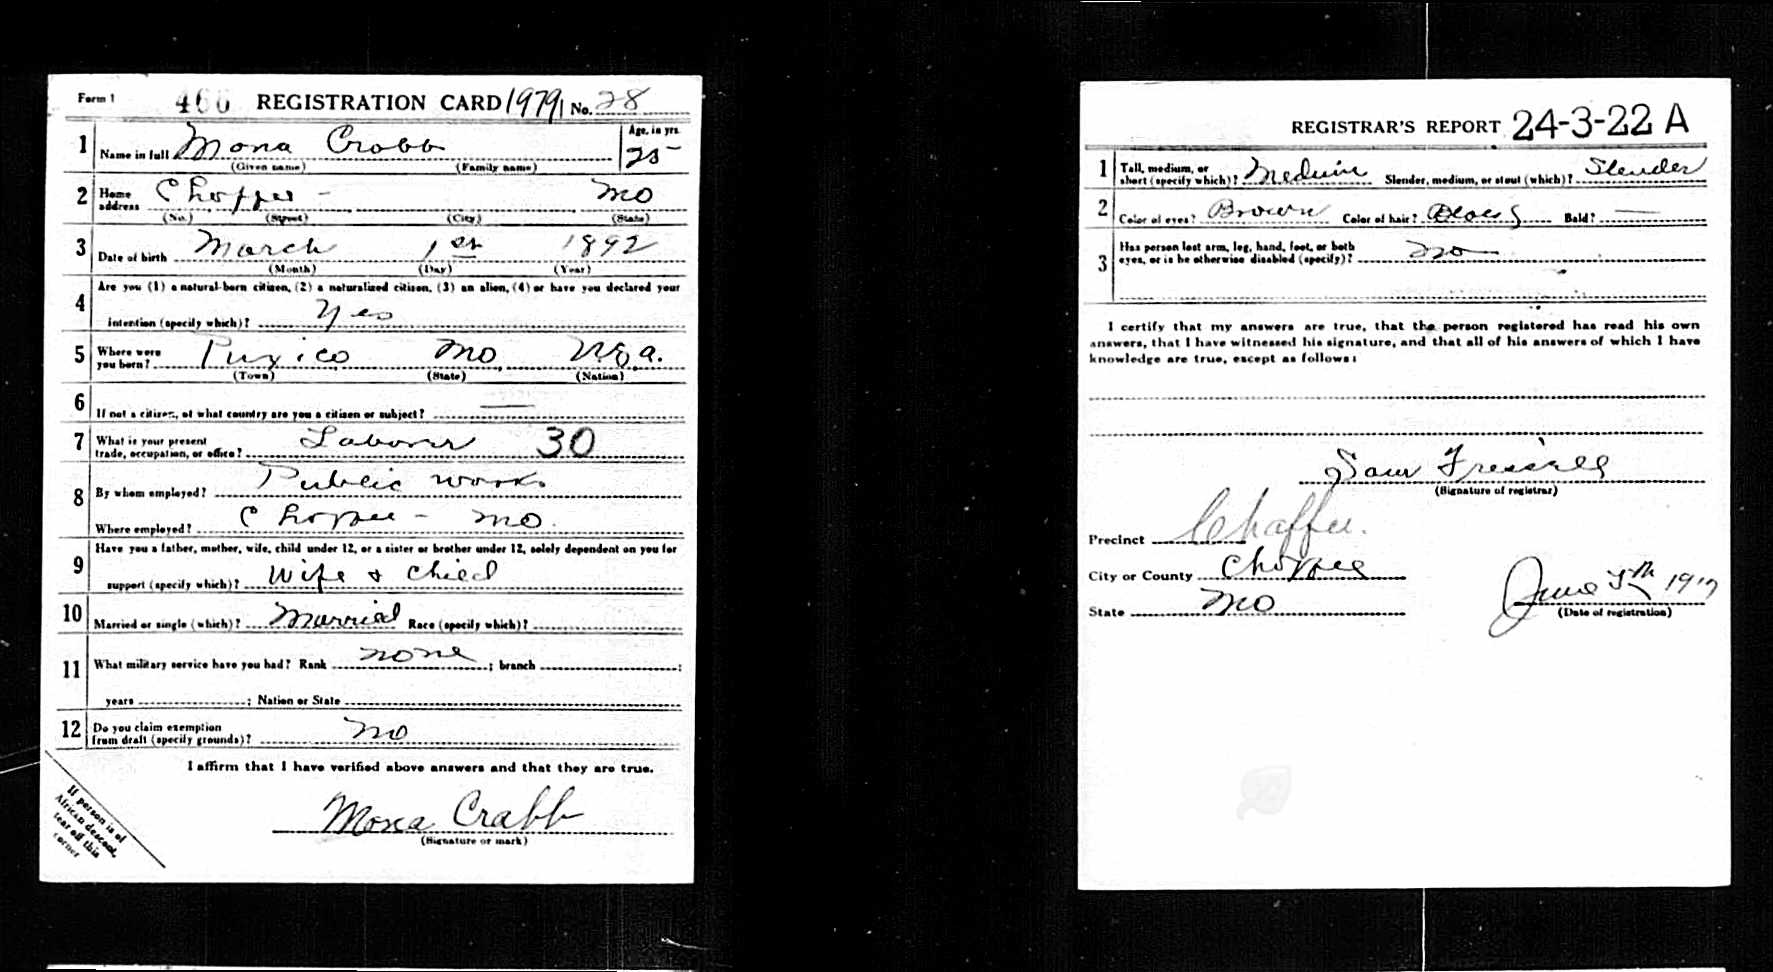 Form 1 466 REGISTRATION CARD 1979 No. 28
1 Name in full Mona Crabb Age, in yrs. 25
(Given name) (Family name)
2 Home address Choppee - Mo
(No.) (Street) (City) (State)
3 Date of birth March 1st 1892
(Month) (Day) (Year)
4 Are you (1) a natural-born citizen, (2) a naturalized citizen, (3) an alien, (4) or have you declared your
intention (specify which)? Yes
5 Where were you born? Puxico Mo USa.
(Town) (State) (Nation)
6 If not a citizen, of what country are you a citizen or subject? —
7 What is your present trade, occupation, or office? Laborer 30
8 By whom employed? Public works
Where employed? Choppee - Mo.
9 Have you a father, mother, wife, child under 12, or a sister or brother under 12, solely dependent on you for
support (specify which)? Wife & child
10 Married or single (which)? Married Race (specify which)?
11 What military service have you had? Rank none ; branch ;
years ; Nation or State
12 Do you claim exemption from draft (specify grounds)? No
I affirm that I have verified above answers and that they are true.
Mona Crabb
(Signature or mark)
If person is of
African descent,
tear off this
corner
REGISTRAR'S REPORT 24-3-22 A
1 Tall, medium, or short (specify which)? Medium Slender, medium, or stout (which)? Slender
2 Color of eyes? Brown Color of hair? Black Bald? —
3 Has person lost arm, leg, hand, foot, or both
eyes, or is he otherwise disabled (specify)? No
I certify that my answers are true, that the person registered has read his own
answers, that I have witnessed his signature, and that all of his answers of which I have
knowledge are true, except as follows:
Sam
(Signature of registrar)
Precinct Chaffee.
City or County Choppee
State Mo
June 5th 1917
(Date of registration)